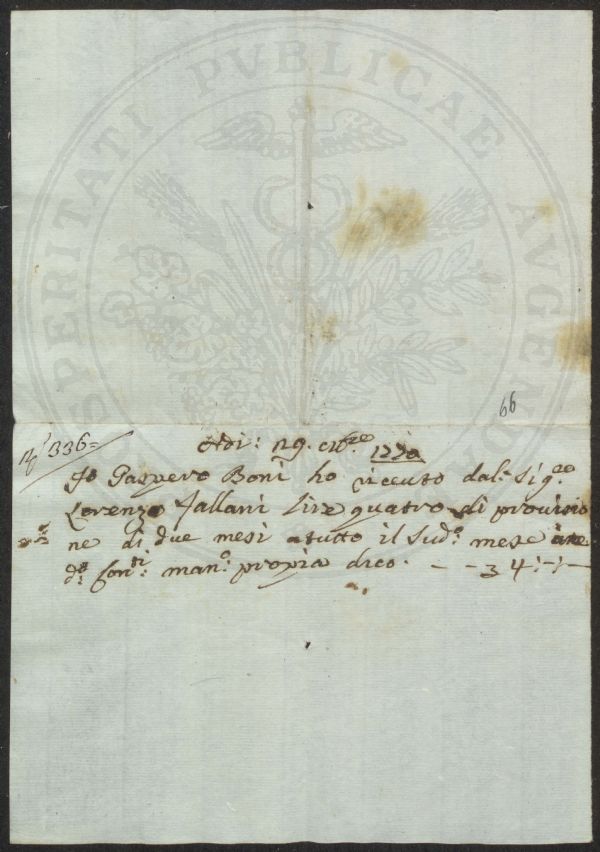 PROSPERITATI PVBLICAE AVGENDAE
66
N° 336=
Adi: 29. 1770
Io Gaspero Boni ho riceuto dal: Sig.re
Lorenzo Fallani lire quatro di prouisio
ne di due mesi a tutto il Sud.o mese
d.i Con.ti man.o propia dico. - - 3 4:-:-